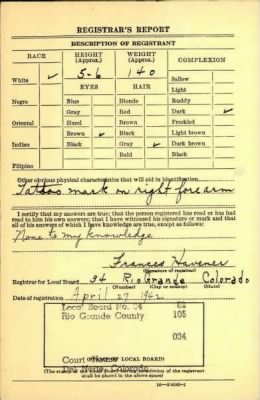 REGISTRAR'S REPORT
DESCRIPTION OF REGISTRANT
RACE
HEIGHT (Approx.)
WEIGHT (Approx.)
COMPLEXION
White ✓
5-6
140
Sallow
Light
EYES
HAIR
Negro
Blue
Blonde
Ruddy
Gray
Red
Dark ✓
Oriental
Hazel
Brown
Freckled
Brown ✓
Black
Light brown
Indian
Black
Gray ✓
Dark brown
Bald
Black
Filipino
Other obvious physical characteristics that will aid in identification
Tattoo mark on right forearm
I certify that my answers are true; that the person registered has read or has had
read to him his own answers; that I have witnessed his signature or mark and that
all of his answers of which I have knowledge are true, except as follows:
None to my knowledge
Frances Havener
(Signature of registrar)
Registrar for Local Board 34 Rio Grande Colorado
Date of registration April 27 1942
Local Board No. 34 82
Rio Grande County 105
034
Court
Del Norte, Colorado
(STAMP OF LOCAL BOARD)
(The stamp of the Local Board having jurisdiction of the registrant
shall be placed in the above space)